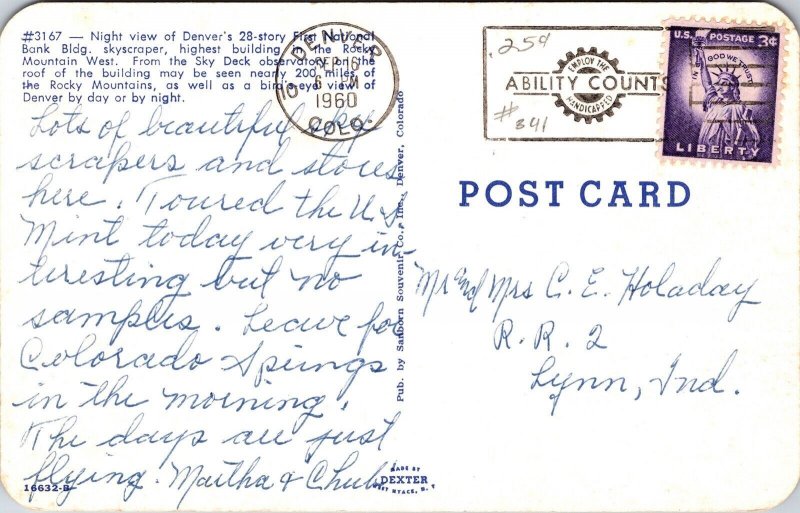 #3167 — Night view of Denver's 28-story First National
Bank Bldg. skyscraper, highest building in the Rocky
Mountain West. From the Sky Deck observatory on the
roof of the building may be seen nearly 200 miles of
the Rocky Mountains, as well as a bird's-eye view of
Denver by day or by night.
Lots of beautiful sky
scrapers and stores
here. Toured the U.S.
Mint today very in-
teresting but no
samples. Leave for
Colorado Springs
in the morning.
The days are just
flying. Martha & Chub
16632-B
Pub. by Sanborn Souvenir Co., Inc., Denver, Colorado
MADE BY
DEXTER
WEST NYACK, N. Y.
DENVER
SEP 16
6 PM
1960
COLO.
.25¢
#341
EMPLOY THE
ABILITY COUNTS
HANDICAPPED
U.S. POSTAGE 3¢
IN GOD WE TRUST
LIBERTY
POST CARD
Mr and Mrs C. E. Holaday
R. R. 2
Lynn, Ind.